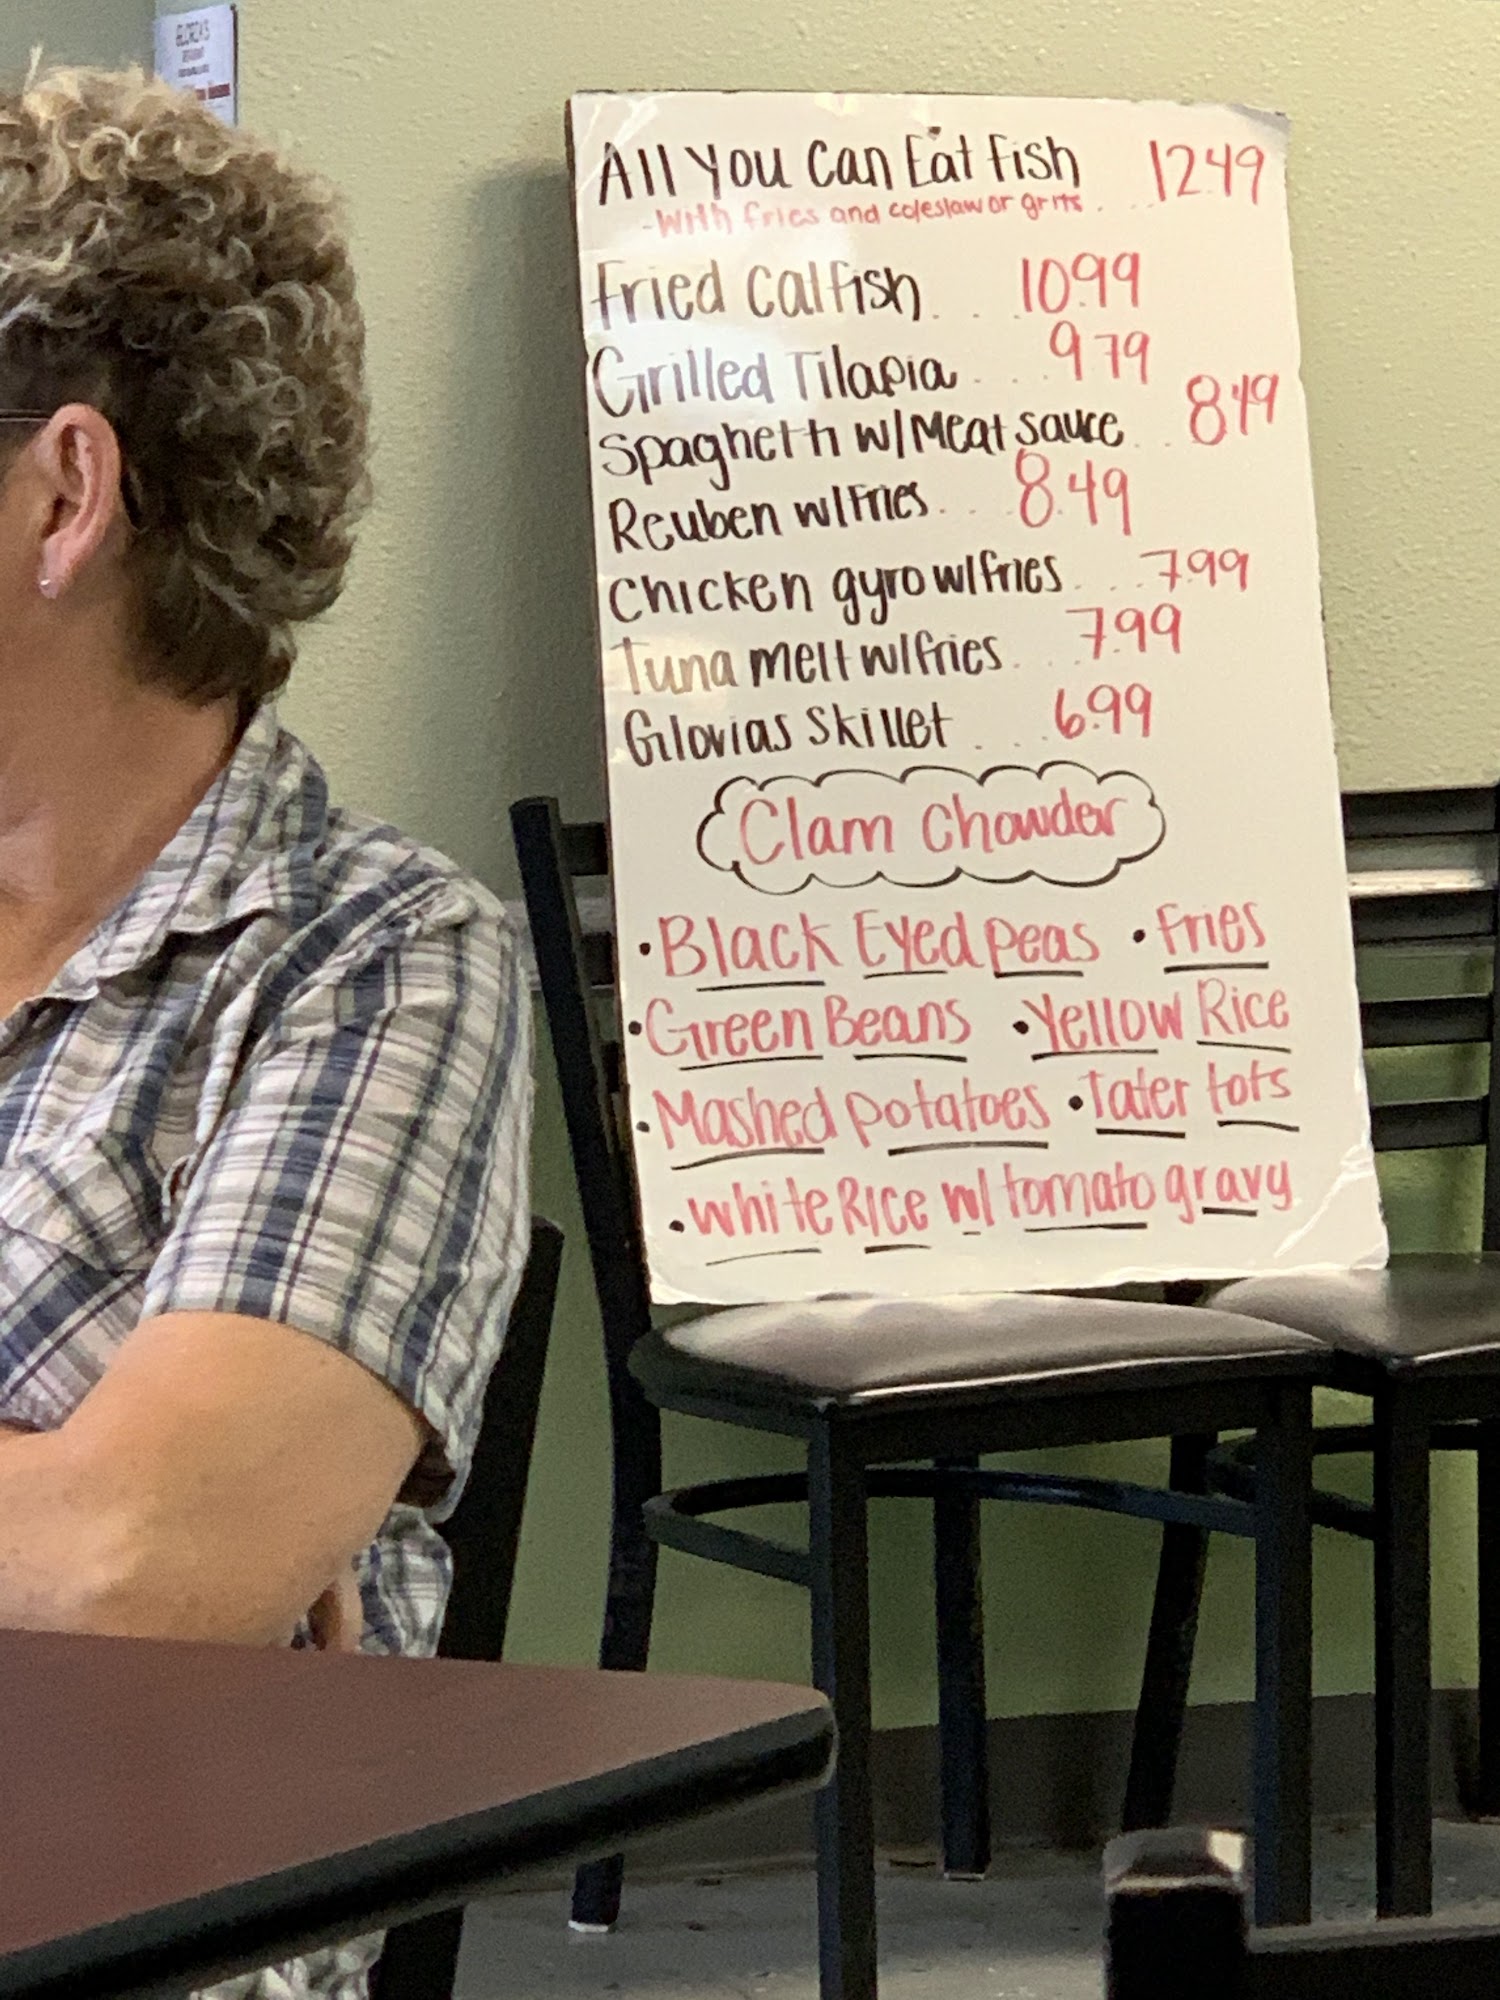 GLORIA'S
All You Can Eat Fish 12.49
-With fries and coleslaw or grits . . .
Fried Catfish . . . 10.99
Grilled Tilapia . . . 9.79
Spaghetti w/ Meat sauce . . 8.49
Reuben w/ Fries . . . 8.49
Chicken gyro w/ fries . . . 7.99
Tuna melt w/ fries . . . 7.99
Glorias Skillet . . . 6.99
Clam Chowder
• Black Eyed peas • Fries
• Green Beans • Yellow Rice
• Mashed potatoes • Tater tots
• White Rice w/ tomato gravy